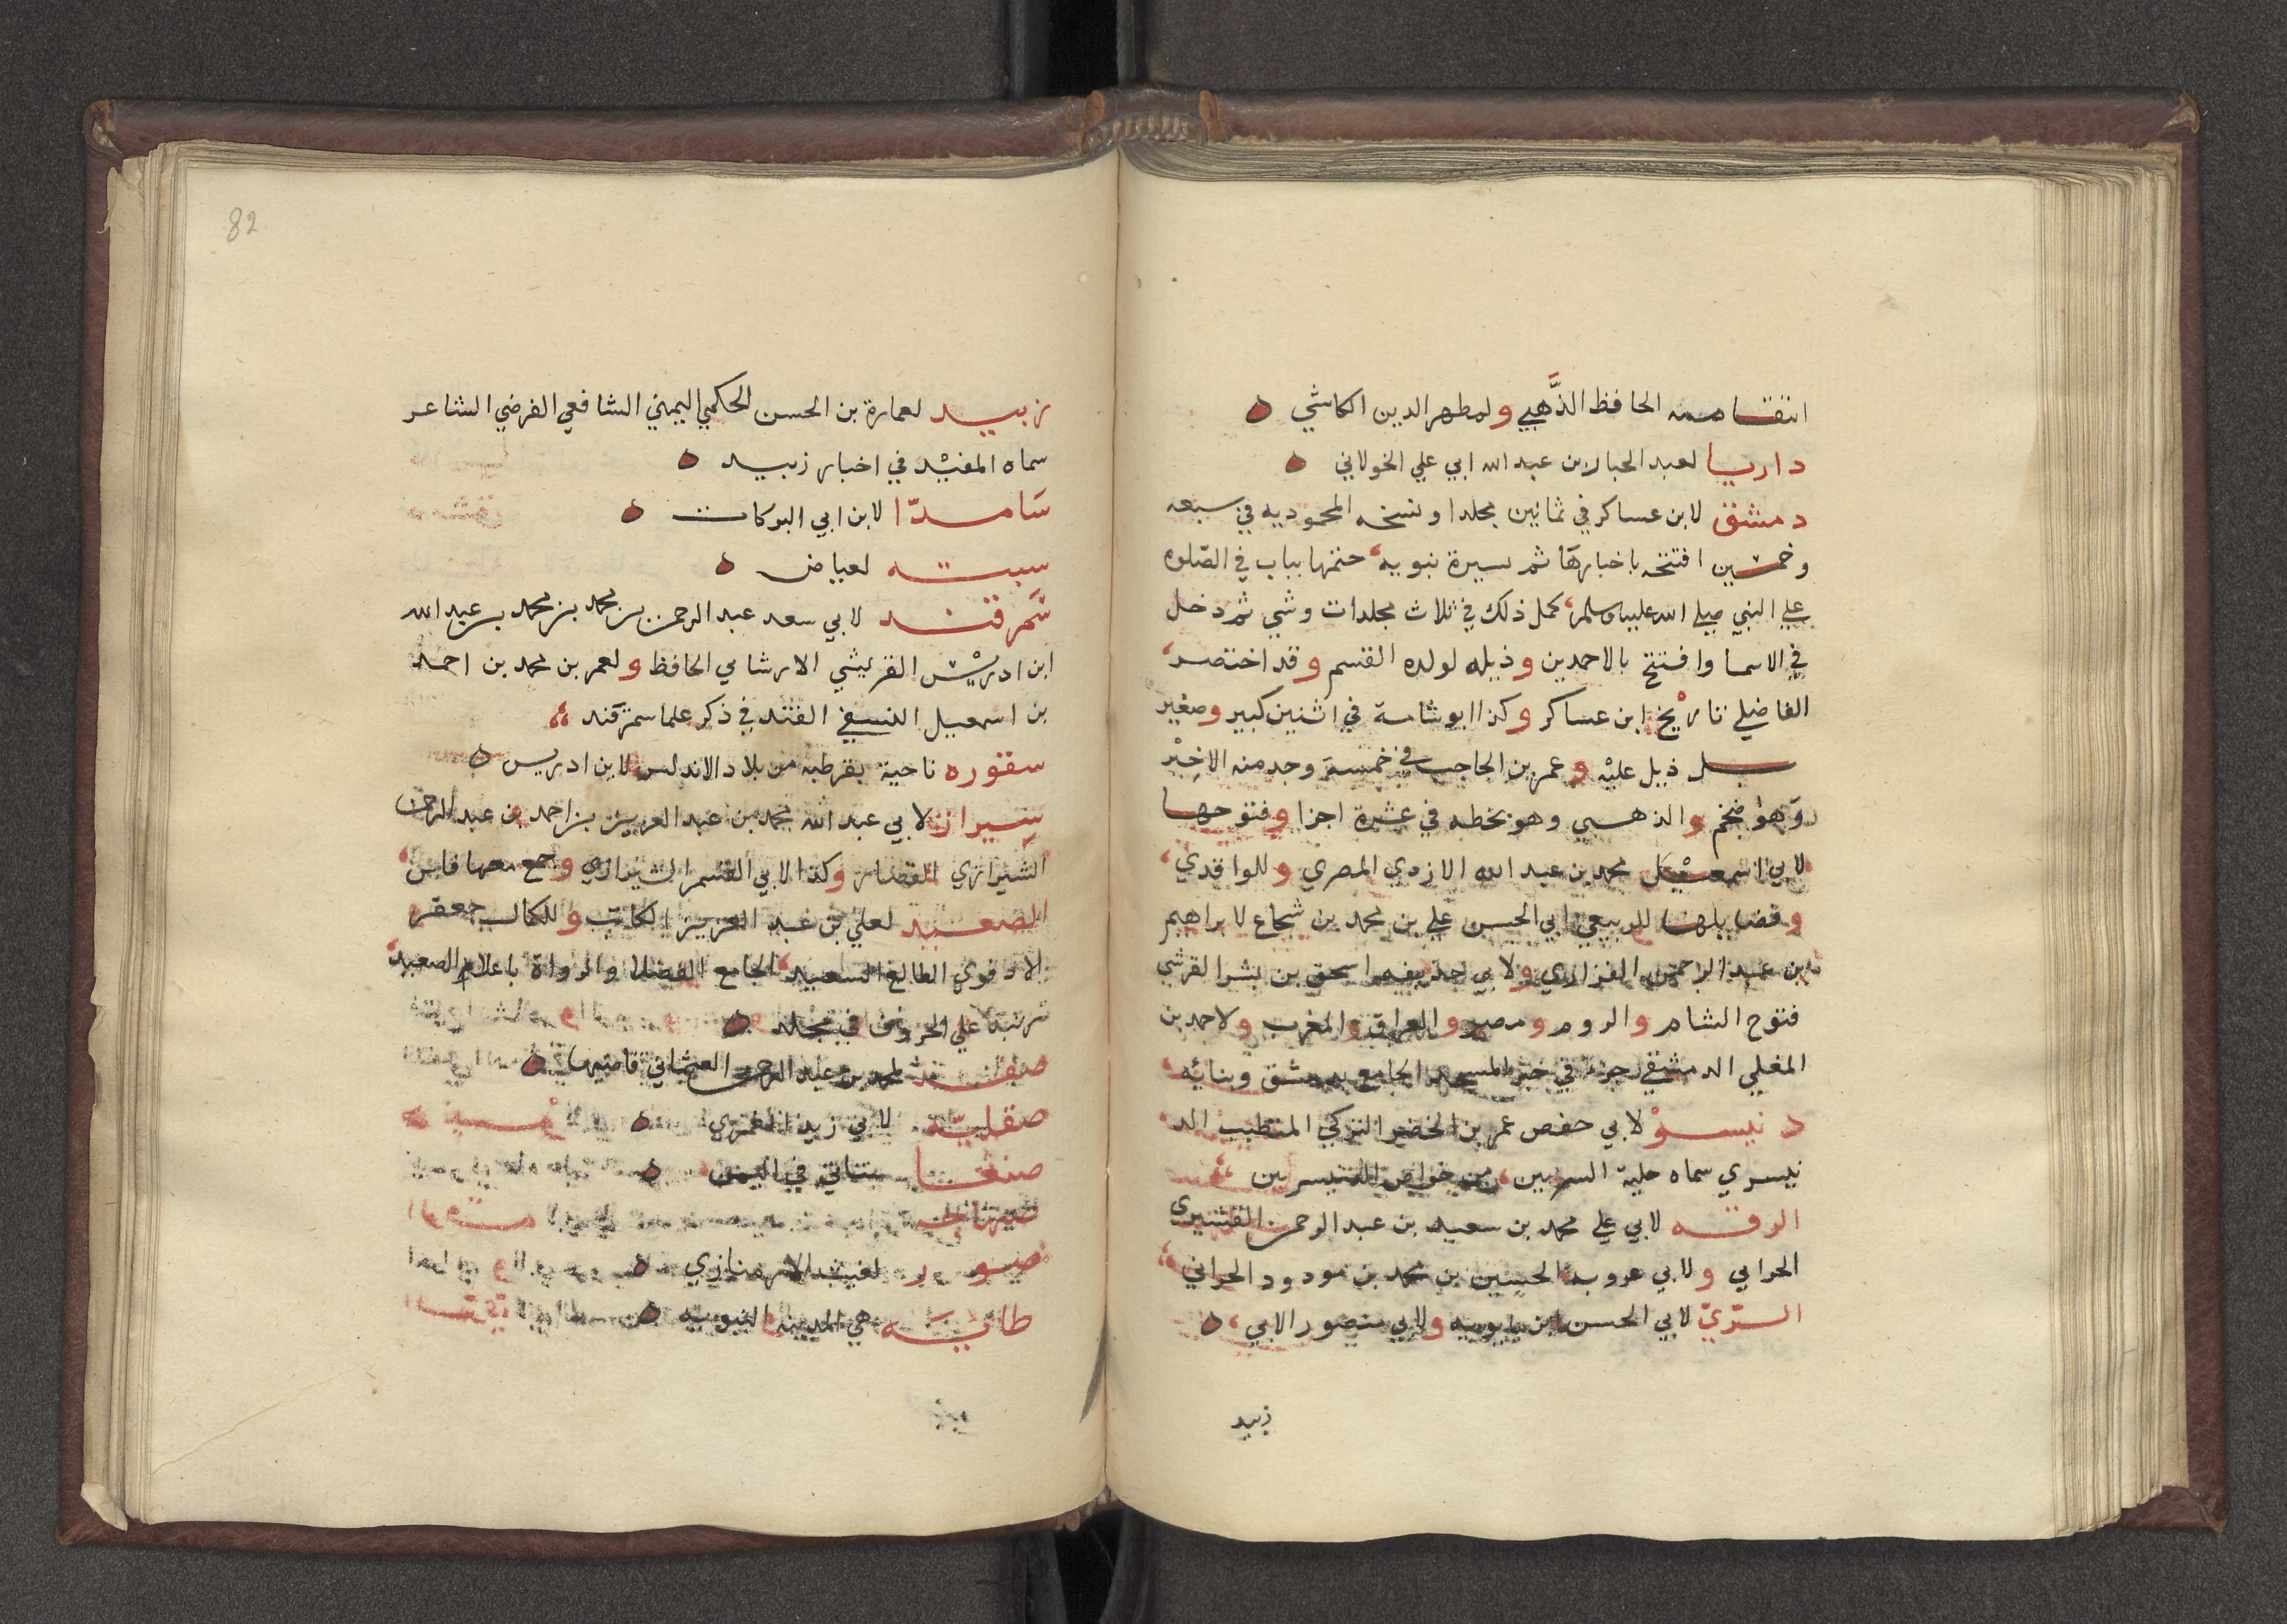 انتقا منه الحافظ الذَّهبي ولمطهر الدين الكاشي ٥
داريا لعبد الجبار بن عبد الله ابي علي الخولاني ٥
دمشق لابن عساكر في ثمانين مجلدا ونسخه المحموديه في سبعه
وخمسين افتتحه باخبارها ثم بسيرة نبويه، ختمها بباب في الصّلوه
علي النبي صلي الله عليه وسلم، كمل ذلك في ثلاث مجلدات وشي ثم دخل
في الاسما وافتتح بالاحمدين وذيله لولده القسم وقد اختصر،
الفاضلي تاريْخ ابن عساكر وكذا ابو شامة في اثنين كبير وصغير
بل ذيل عليْه وعمر بن الحاجب في خمسة وجد منه الاخِيْر
وَهوَ ضخم والذهبي وهو بخطه في عشرة اجزا وفتوحها
لابي اسمعيْل محمد بن عبد الله الازدي المصري وللواقدي،
وفضايلها للربيعي ابي الحسن علي بن محمد بن شجاع لابراهيم
بن عبد الرحمن الفزاري ولابي حذيفه اسحق بن بشر القرشي
فتوح الشام والروم ومصر والعراق والمغرب ولاحمد بن
المعلي الدمشقي جزء في خبر المسجد الجامع بدمشق وبنائه،
دنيسرْ لابي حفص عمر بن الخضر التركي المتطبب الد
نيسري سماه حلية السريين، من خواص الدنيسريين
الرقه لابي علي محمد بن سعيد بن عبد الرحمن القشيري
الحرابي ولابي عروبه الحسين بن محمد بن مودود الحراني
الرّيّ لابي الحسن ابن بابويه ولابي منصور الابي، ٥
زبيد
82
زبيد لعمارة بن الحسن الحكمي اليمني الشافعي الفرضي الشاعر
سماه المفيْد في اخبار زبيد ٥
سَامرّا لابن ابي البركات ٥
سبته لعياض ٥
سَمرقند لابي سعد عبد الرحمن بن محمد بن محمد بن عبد الله
ابن ادريْس القريشي الارشامي الحافظ ولعمر بن محمد بن احمد
بن اسمعيل النسفي القند في ذكر علما سمرقند
سقوره ناحية بقرطبة من بلاد الاندلس لابن ادريس ٥
شيراز لابي عبد الله محمد بن عبد العزيز بن احمد بن عبد الرحمن
الشيرازي القصار وكذا لابي القسم الشيرازي وجمع معها فارس،
الصعيد لعلي بن عبد العزيز الكاتب وللكمال جعفر
الادفوي الطالع السعيد، الجامع الفضلا والرواة باعلام الصعيد،
رتبه علي الحروف في مجلد ٥
صفد لمحمد بن عبد الرحمن العثماني قاضيها ٥
صقليّه لابي زيد الغمري ٥
صنعا ستاتي في اليمن ٥
صنهاجه
صور لغيث الارمنازي ٥
طابَه هي المدينه النبويه ٥